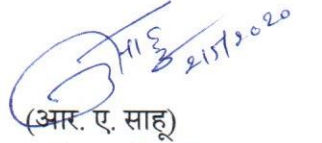 साहू 21/5/2020
(आर. ए. साहू)